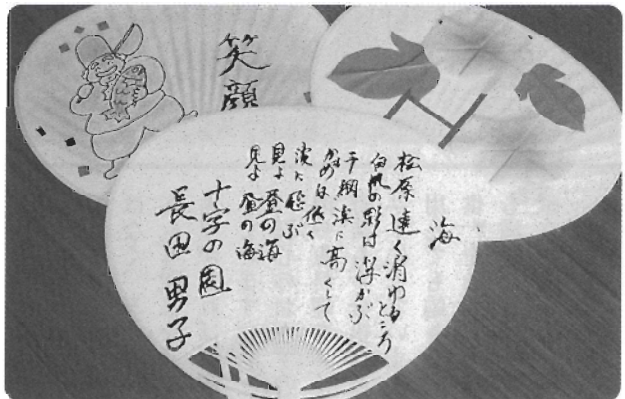 笑顔
海
松原遠く消ゆる
ところ
白帆の影は浮かぶ
干網浜に高くして
かもめは低く
波に飛ぶ
見よ昼の海
見よ昼の海
十字の園
長田男子